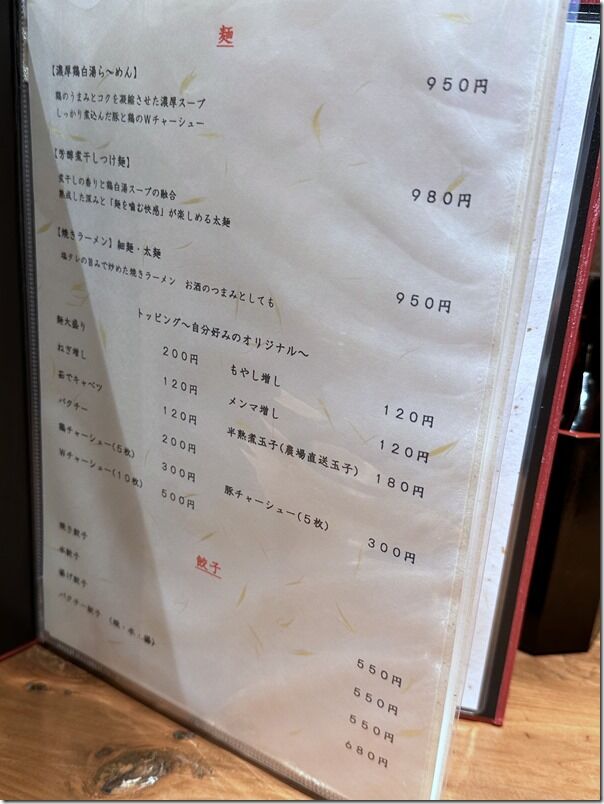 麺
【濃厚鶏白湯ら〜めん】 950円
鶏のうまみとコクを凝縮させた濃厚スープ
しっかり煮込んだ豚と鶏のWチャーシュー
【芳醇煮干しつけ麺】 980円
煮干しの香りと鶏白湯スープの融合
熟成した深みと「麺を噛む快感」が楽しめる太麺
【焼きラーメン】細麺・太麺 950円
塩タレの旨みで炒めた焼きラーメン お酒のつまみとしても
トッピング〜自分好みのオリジナル〜
麺大盛り 200円 もやし増し 120円
ねぎ増し 120円 メンマ増し 120円
茹でキャベツ 120円 半熟煮玉子(農場直送玉子) 180円
パクチー 200円
鶏チャーシュー(5枚) 300円 豚チャーシュー(5枚) 300円
Wチャーシュー(10枚) 500円
餃子
焼き餃子 550円
水餃子 550円
揚げ餃子 550円
パクチー餃子 (焼・水・揚) 680円